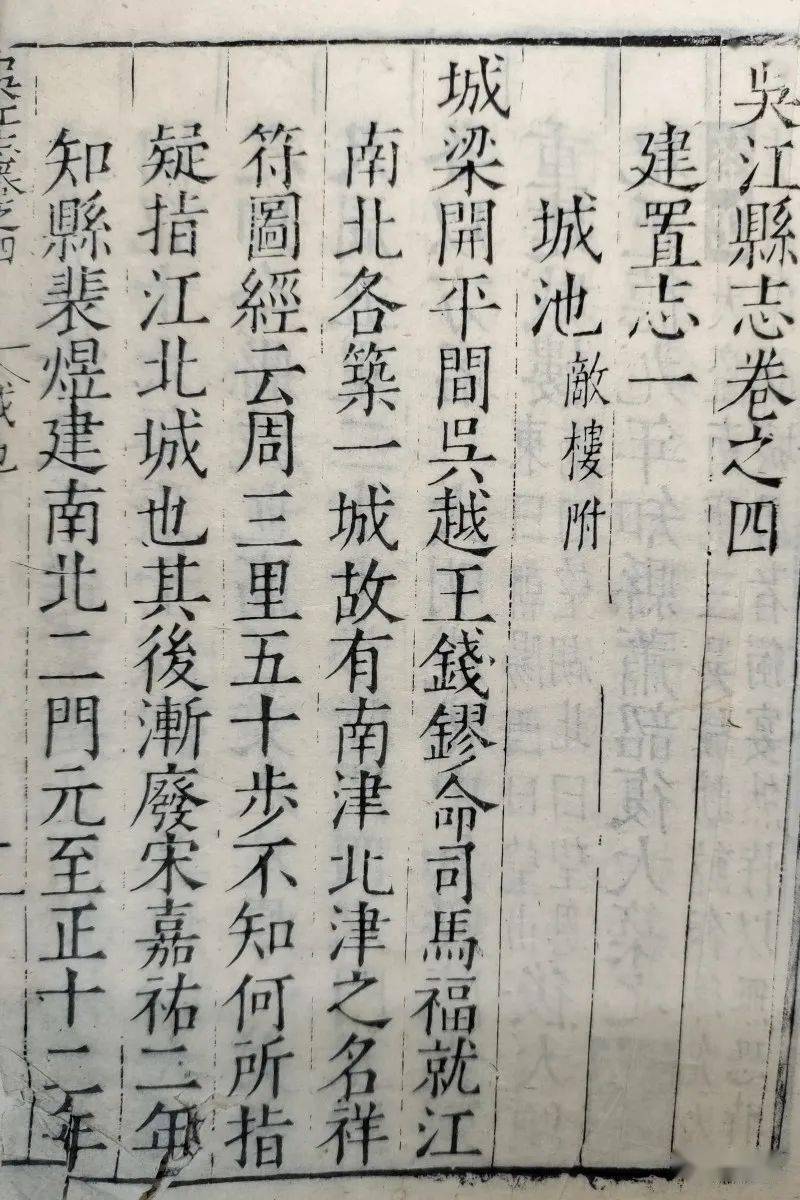 吳江縣志卷之四
建置志一
城池敵樓附
城梁開平間吳越王錢鏐命司馬福就江
南北各築一城故有南津北津之名祥
符圖經云周三里五十步不知何所指
疑指江北城也其後漸廢宋嘉祐二年
知縣裴煜建南北二門元至正十二年